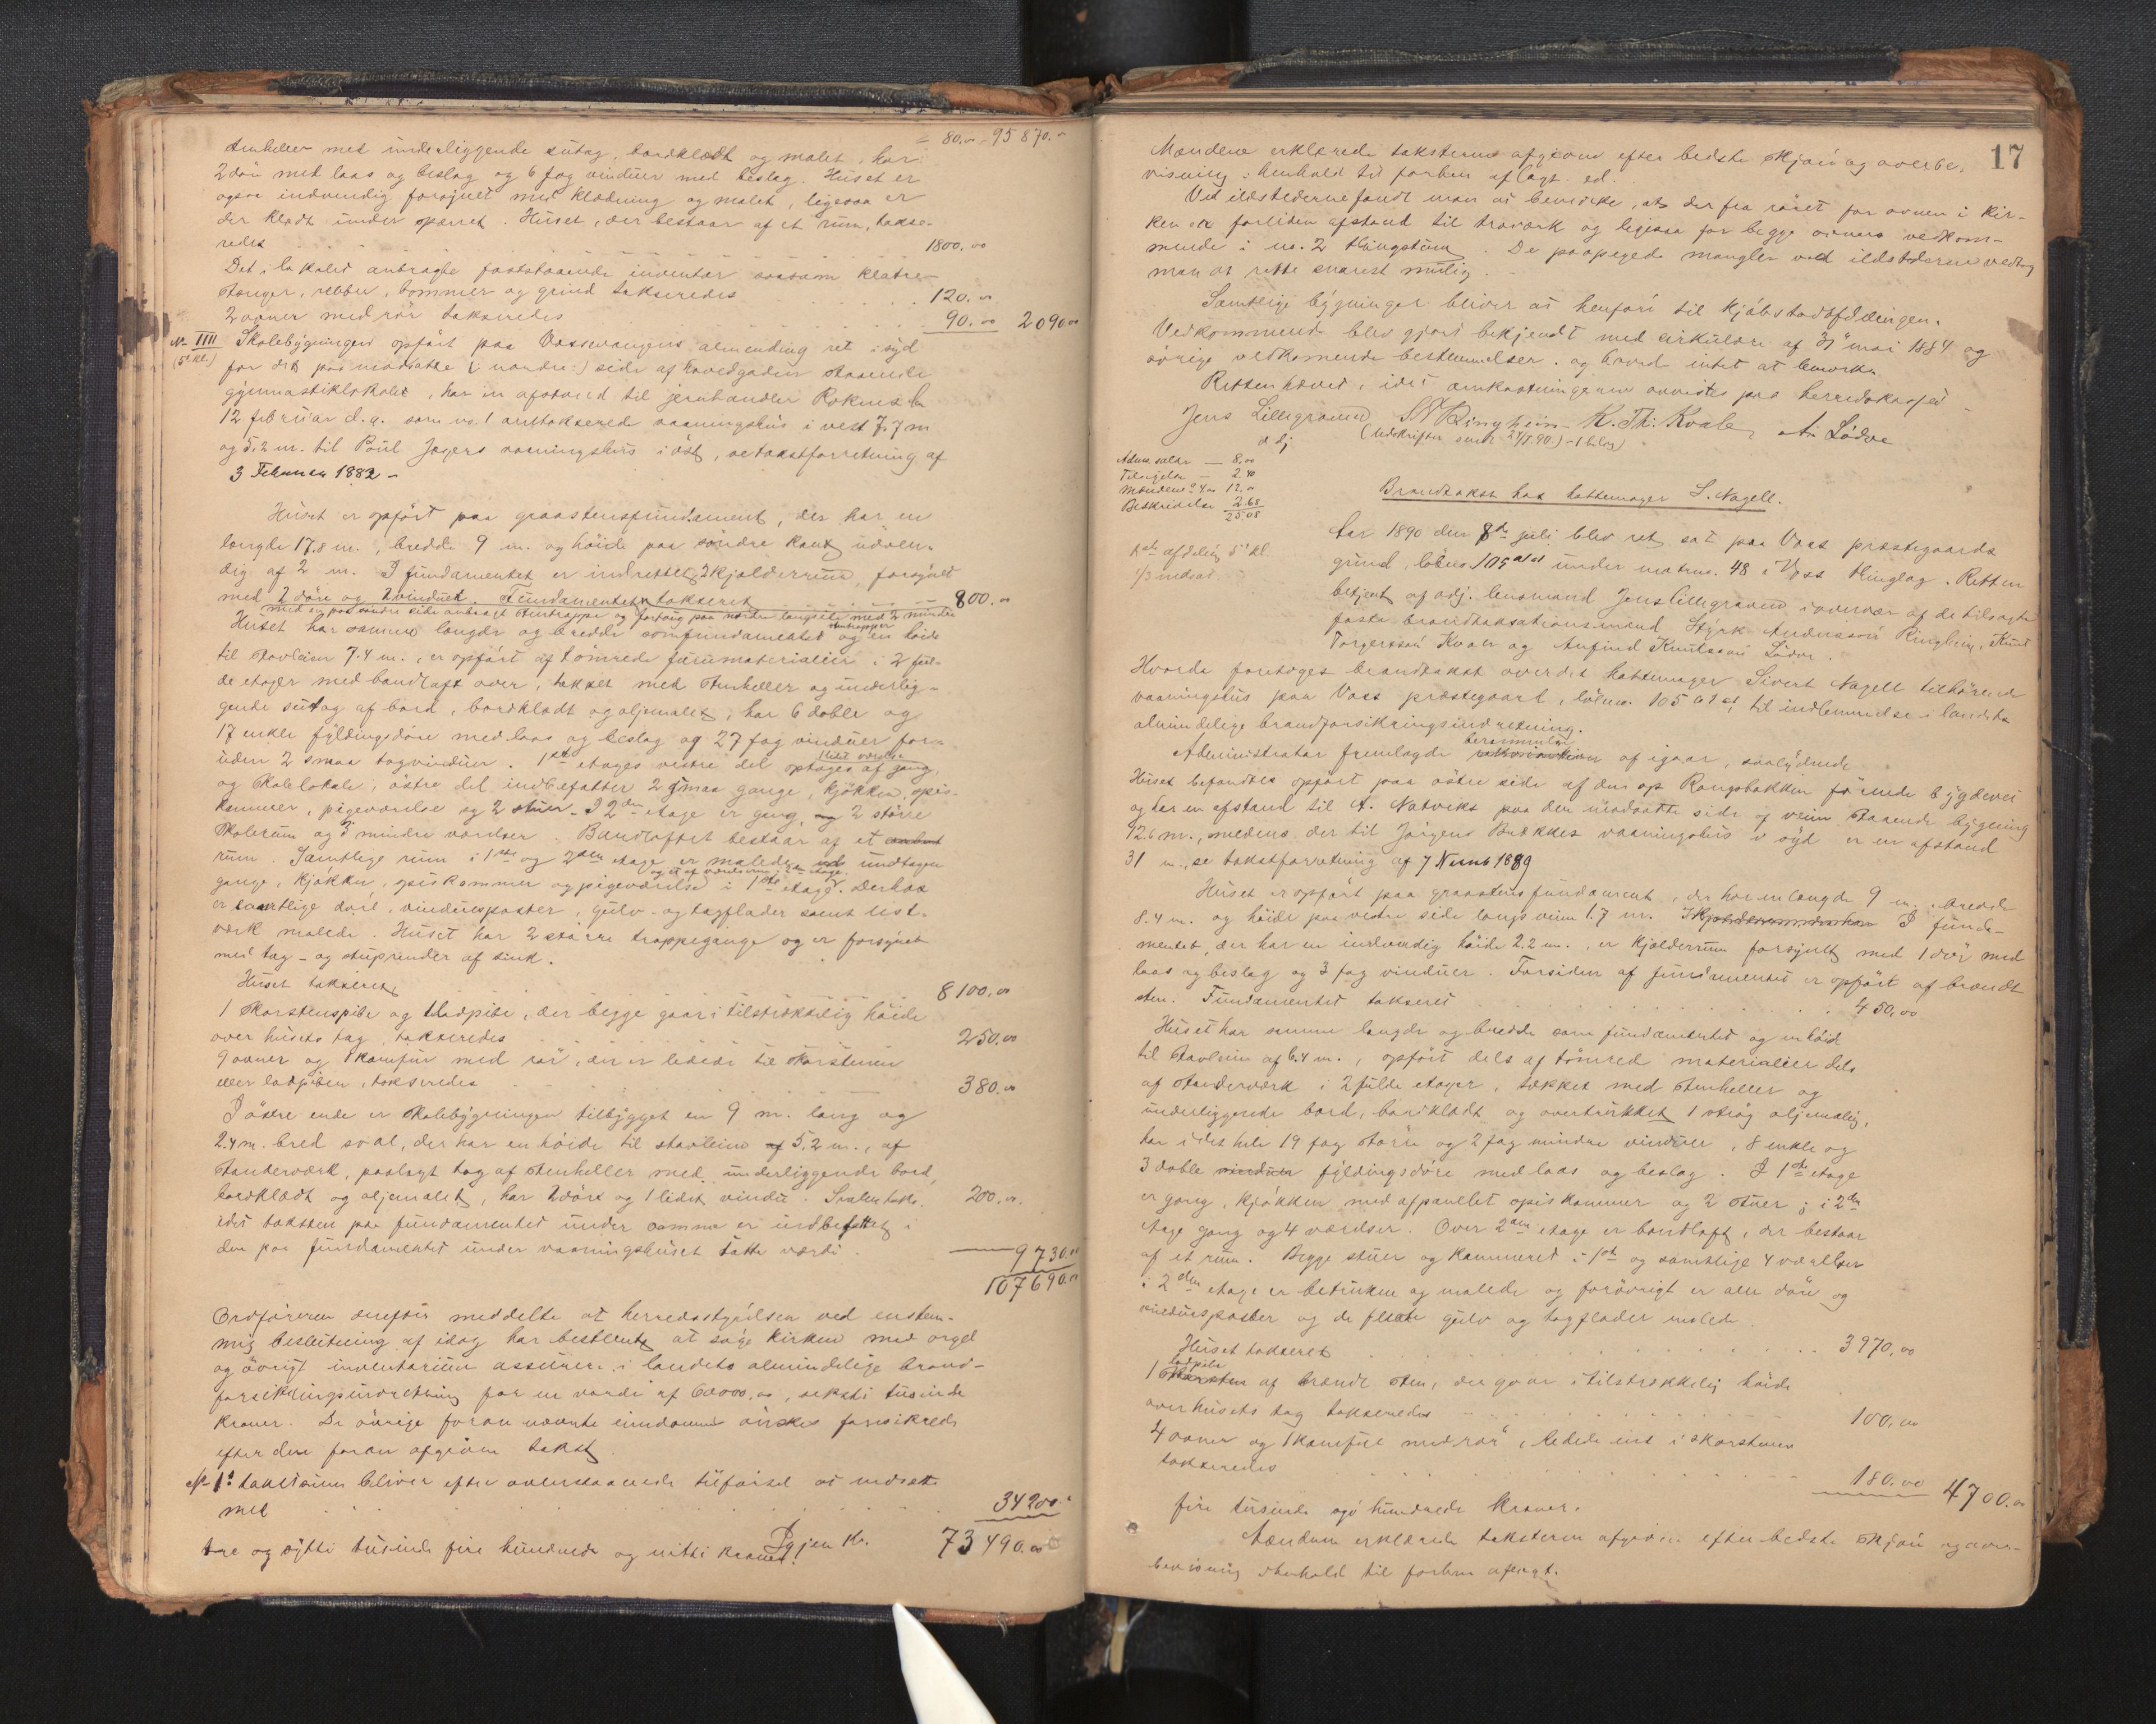 = 80,00 95 870.00
stenheller med underliggende sutag, bordklædt og malet, har
2 döre med laas og beslag og 6 fag vinduer med beslag. Huset er
ogsaa indvendig forsynet med klædning og malet, ligesaa er
der klædt under sparret. Huset, der bestaar af et rum, takse-
redes 1800,00
Det i lokalet anbragte faststaaende inventar saasom klatre-
stænger, ribber, bommer og grind takseredes 120.00
2 ovner med rör takseredes 90.00 2090.00
No IIII Skolebygningen opfört paa Vossevangens almending ret i syd
(5 kl.) for det paa modsatte (: nordre :) side af hovedgaden staaende
gymnastiklokale, har en afstand til jernhandler Roknes's
12 februar d.a. som no 1 omtakserede vaaningshus i vest 7,7 m
og 5,2 m. til Poul Jægers vaaningshus i öst, se takstforretning af
3 Februar 1882 -
Huset er opfört paa graastensfundament, der har en
længde 17.8 m., bredde 9 m. og höide paa söndre kant udven-
dig af 2 m. I fundamentet er indrettet 2 kjælderrum, forsynet
med 2 döre og 2 vinduer. Fundamentet takseret 800.00
med en paa söndre side anbragt stentrappe og fortaug paa nordre langside med 2 mindre
stentrapper
Huset har samme længde og bredde som fundamentet og en höide
til stavleien 7.4 m., er opfört af tömrede furumaterialier i 2 ful-
de etager med bandloft over, tækket med stenheller og underlig-
gende sutag af bord, bordklædt og oljemalet, har 6 doble og
17 enkle fyldingsdöre med laas og beslag og 27 fag vinduer for-
uden 2 smaa tagvinduer. 1ste etages vestre del optages af gang,
og skolelokale, östre del indbefatter 2 smaa gange, kjökken, spis-
kammer, pigeværelse og 2 stuer. I 2den etage er gang, og 2 större
skolerum og 3 mindre værelser. Bandloftet bestaar af et
rum. Samtlige rum i 1ste og 2den etage er malede undtagen
gange, kjökken, spiskammer og pigeværelse i 1ste etage. Derhos
er samtlige döre, vinduesposter, gulv- og tagflader samt list-
værk malede. Huset har 2 större trappegange og er forsynet
med tag- og stuprender af sink.
Huset takseret 8100,00
1 skorstenspibe og 1 ladpibe, der begge gaar i tilstrækkelig höide
over husets tag, takseredes 250.00
9 ovner og 1 komfur med rör, der er ledede til skorstenen
eller ladpiben, takseredes 380.00
I östre ende er skolebygningen tilbygget en 9 m. lang og
2.4 m. bred sval, der har en höide til stavleien af 5,2 m., af
standerværk, paalagt tag af stenheller med underliggende bord,
bordklædt og oljemalet, har 2 döre og 1 lidet vindu. Svalen taks. 200,00
idet taksten paa fundamentet under samme er indbefattet i
den paa fundamentet under vaaningshuset satte værdi.
9730.00
107690.00
Ordföreren meddelte at herredsstyrelsen ved enstem-
mig beslutning af idag har bestemt at söge kirken med orgel
og övrigt inventarium assureret i landets almindelige brand-
forsikringsindretning for en værdi af 60000,00, seksti tusinde
kroner. De övrige foran nævnte eiendomme önskes forsikrede
efter den foran afgivne takst.
No 1s takstsum bliver efter ovenstaaende tilförsel at nedsætte
med 34200
Igjen Kr. 73490.00
tre og sytti tusinde fire hundrede og nitti kroner.
17
Mændene erklærede taksterne afgivne efter bedste skjön og overbe-
visning i henhold til forhen aflagt ed.
Ved ildstederne fandt man at bemærke, at der fra röret for ovnen i kir-
ken er forliden afstand til træværk og ligesaa for begge ovners vedkom-
mende i no. 2 thingstuen. De paapegede mangler ved ildstederne vedtog
man at rette snarest mulig.
Samtlige bygninger bliver at henföre til kjöbstadafdelingen.
Vedkommende blev gjort bekjendt med cirkulære af 31 mai 1884 og
övrige vedkommende bestemmelser, og havde intet at bemærke.
Retten hævet, idet omkostningerne anvistes paa herredskassen
Jens Lillegraven S A Ringheim K. Th. Kvale A. Lödve
adj (Udskrift sendt 24/7 90) - 1 bilag)
Adm. salær — 8.00
Tilsigelse — 2.40
Mændene a 4.00 12.00
Beskrivelse 2.68
25.08
Brandtakst hos hattemager S. Nagell.
1ste afdeling 5te kl.
1/3 nedsat
Aar 1890 den 8de juli blev ret sat paa Voss præstegaards
grund, löbno. 105 under matrno. 48 i Voss thinglag. Retten
betjent af adj. lensmand Jens Lillegraven i overvær af de tilsagte
faste brandtakstationsmænd Styrk Andersson Ringheim, Knut
Torgersson Kvale og Anfind Knutsson Lödve.
Hvorda foretoges brandtakst over det hattemager Sivert Nagell tilhörende
vaaningshus paa Voss præstegaard, löbno. 105 til indlemmelse i landets
almindelige brandforsikringsindretning.
Administrator fremlagde berammelse af igaar, saalydende
Huset befandtes opfört paa östre side af den op Rongsbakken förende bygdevei
og har en afstand til A. Natviks paa den modsatte side af veien staaende bygning
12.6 m., medens der til Jörgens Bakkes vaaningshus i syd er en afstand
31 m., se takstforretning af 7 Novemb 1889
Huset er opfört paa graastens fundament, der har en længde 9 m., bredde
8.4 m. og höide paa vestre side langs veien 1.7 m. I funda-
mentet, der har en indvendig höide 2.2 m., er kjælderrum forsynet med 1 dör med
laas og beslag og 3 fag vinduer. Forsiden af fundamentet er opfört af brændt
sten. Fundamentet takseret 450,00
Huset har samme længde og bredde som fundamentet og en höide
til stavleien af 6.4 m., opfört dels af tömrede materialier dels
af standerværk i 2 fulde etager, tækket med stenheller og
underliggende bord, bordklædt og overströkket 1 strög oljemaling,
har i det hele 19 fag större og 2 fag mindre vinduer, 8 enkle og
3 doble vinduer fyldingsdöre med laas og beslag. I 1ste etage
er gang, kjökken med afpanellet spiskammer og 2 stuer; i 2den
etage gang og 4 værelser. Over 2den etage er bandloft, der bestaar
af et rum. Begge stuer og kammeret i 1ste og samtlige 4 værelser
i 2den etage er betrukne og malede og forövrigt er alle döre og
vinduesposter og de fleste gulv og tagflader malede.
Huset takseret 3970,00
ladpibe
1 skorsten af brændt sten, der gaar i tilstrækkelig höide
over husets tag takseredes 100,00
4 ovner og 1 komfur med rör, ledede ind i skorstenen
takseredes 180,00 4700.00
fire tusinde syv hundrede kroner.
Mændene erklærede taksterne afgivne efter bedste skjön og over-
bevisning i henhold til forhen aflagt.